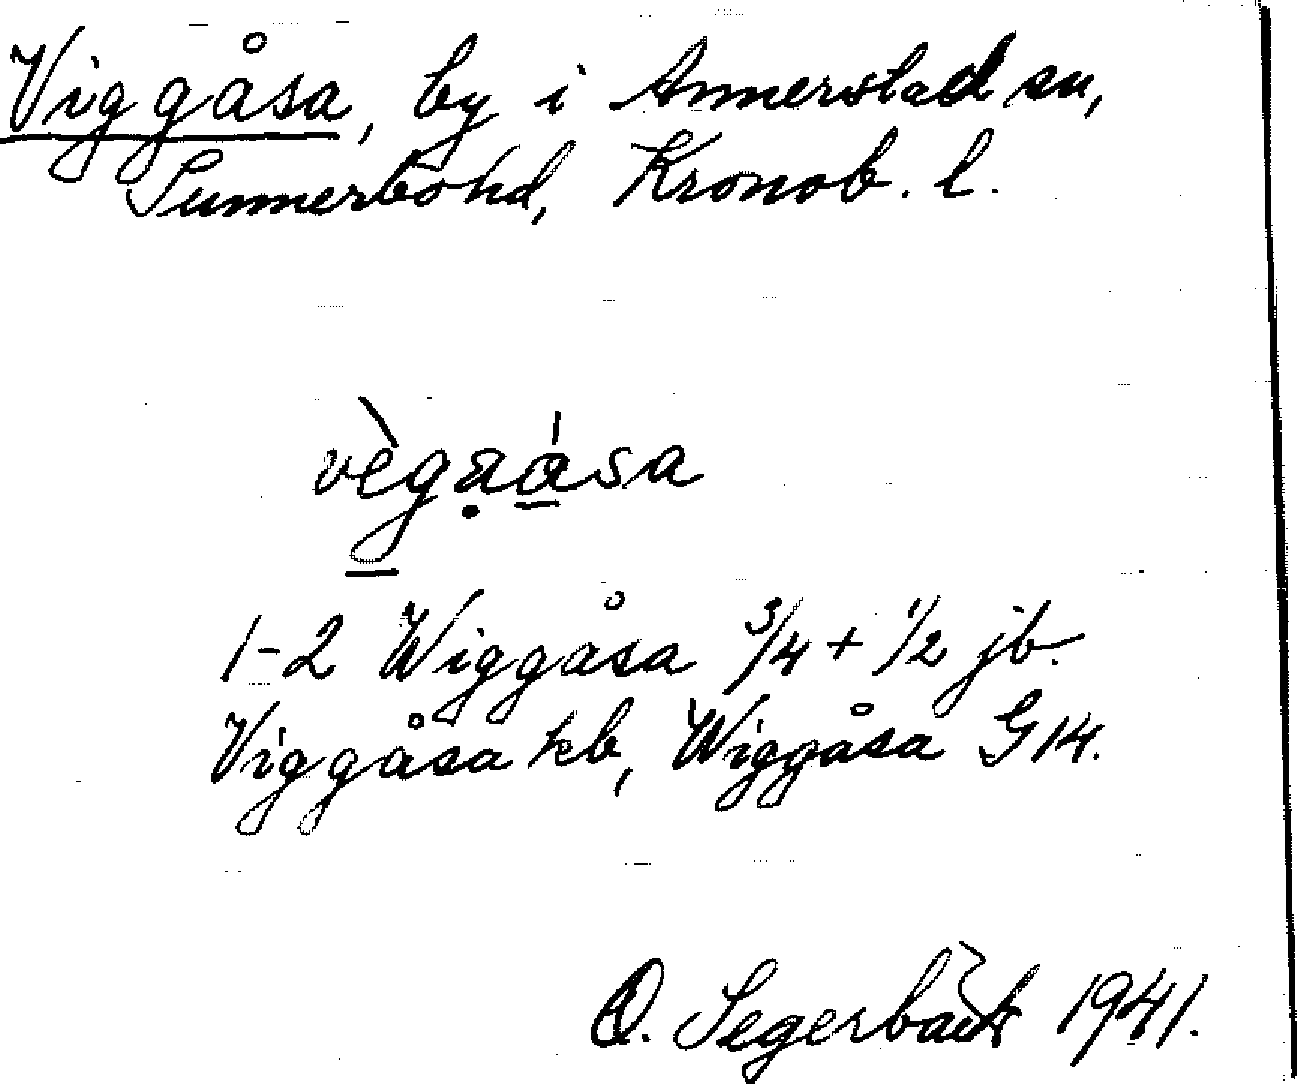 Viggåsa, by i Annerstad sn,
Sunnerbo hd, Kronob. l.
1-2 Wiggåsa 3/4 + 1/2 jb.
Viggåsa kb, Wiggåsa G14.
O. Segerbäck 1941.